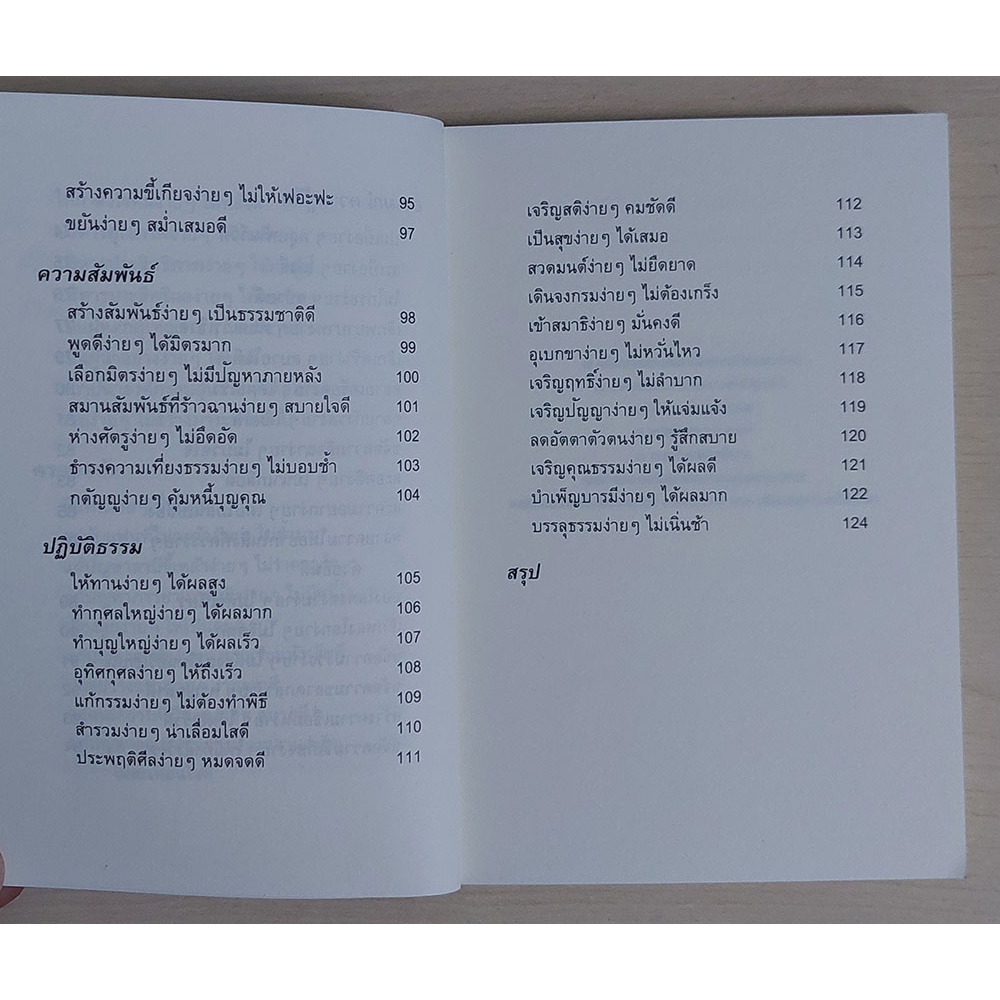 สร้างความขี้เกียจง่ายๆ ไม่ให้เฟอะฟะ 95
ขยันง่ายๆ สม่ำเสมอดี 97
ความสัมพันธ์
สร้างสัมพันธ์ง่ายๆ เป็นธรรมชาติดี 98
พูดดีง่ายๆ ได้มิตรมาก 99
เลือกมิตรง่ายๆ ไม่มีปัญหาภายหลัง 100
สมานสัมพันธ์ที่ร้าวฉานง่ายๆ สบายใจดี 101
ห่างศัตรูง่ายๆ ไม่อึดอัด 102
ธำรงความเที่ยงธรรมง่ายๆ ไม่บอบช้ำ 103
กตัญญูง่ายๆ คุ้มหนี้บุญคุณ 104
ปฏิบัติธรรม
ให้ทานง่ายๆ ได้ผลสูง 105
ทำกุศลใหญ่ง่ายๆ ได้ผลมาก 106
ทำบุญใหญ่ง่ายๆ ได้ผลเร็ว 107
อุทิศกุศลง่ายๆ ให้ถึงเร็ว 108
แก้กรรมง่ายๆ ไม่ต้องทำพิธี 109
สำรวมง่ายๆ น่าเลื่อมใสดี 110
ประพฤติศีลง่ายๆ หมดจดดี 111
เจริญสติง่ายๆ คมชัดดี 112
เป็นสุขง่ายๆ ได้เสมอ 113
สวดมนต์ง่ายๆ ไม่ยืดยาด 114
เดินจงกรมง่ายๆ ไม่ต้องเกร็ง 115
เข้าสมาธิง่ายๆ มั่นคงดี 116
อุเบกขาง่ายๆ ไม่หวั่นไหว 117
เจริญฤทธิ์ง่ายๆ ไม่ลำบาก 118
เจริญปัญญาง่ายๆ ให้แจ่มแจ้ง 119
ลดอัตตาตัวตนง่ายๆ รู้สึกสบาย 120
เจริญคุณธรรมง่ายๆ ได้ผลดี 121
บำเพ็ญบารมีง่ายๆ ได้ผลมาก 122
บรรลุธรรมง่ายๆ ไม่เนิ่นช้า 124
สรุป